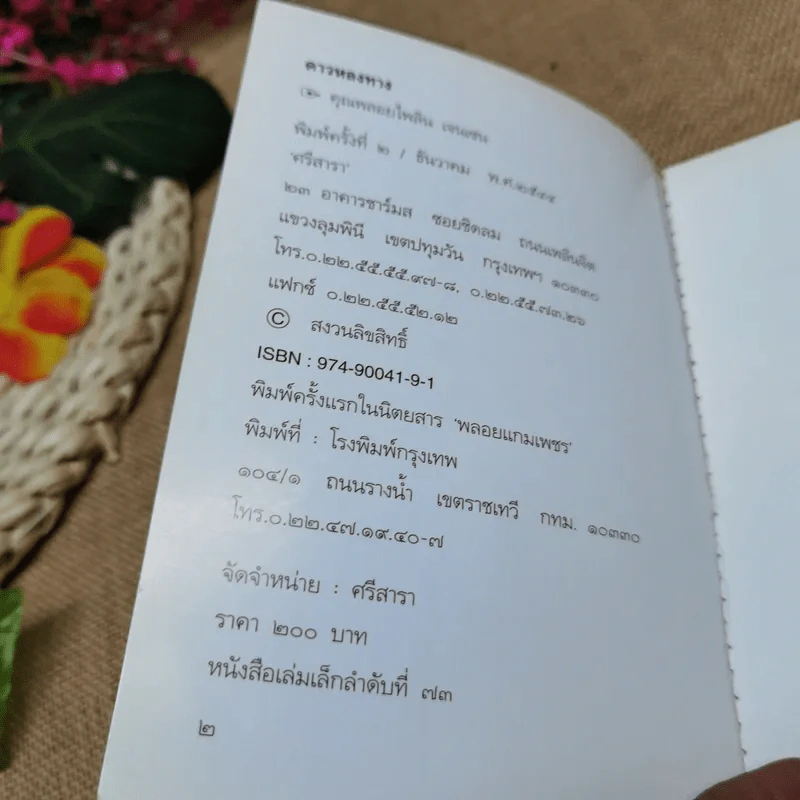 ดาวหลงทาง
คุณพลอยไพลิน เจนเซน
พิมพ์ครั้งที่ ๒ / ธันวาคม พ.ศ.๒๕๔๔
'ศรีสารา'
๒๓ อาคารชาร์มส ซอยชิดลม ถนนเพลินจิต
แขวงลุมพินี เขตปทุมวัน กรุงเทพฯ ๑๐๓๓๐
โทร.๐.๒๒.๕๕.๕๕.๙๗-๘, ๐.๒๒.๕๕.๗๓.๒๖
แฟกซ์ ๐.๒๒.๕๕.๕๒.๑๒
© สงวนลิขสิทธิ์
ISBN : 974-90041-9-1
พิมพ์ครั้งแรกในนิตยสาร 'พลอยแกมเพชร'
พิมพ์ที่ : โรงพิมพ์กรุงเทพ
๑๐๔/๑ ถนนรางน้ำ เขตราชเทวี กทม. ๑๐๓๓๐
โทร.๐.๒๒.๔๗.๑๙.๔๐-๗
จัดจำหน่าย : ศรีสารา
ราคา ๒๐๐ บาท
หนังสือเล่มเล็กลำดับที่ ๗๓
๒